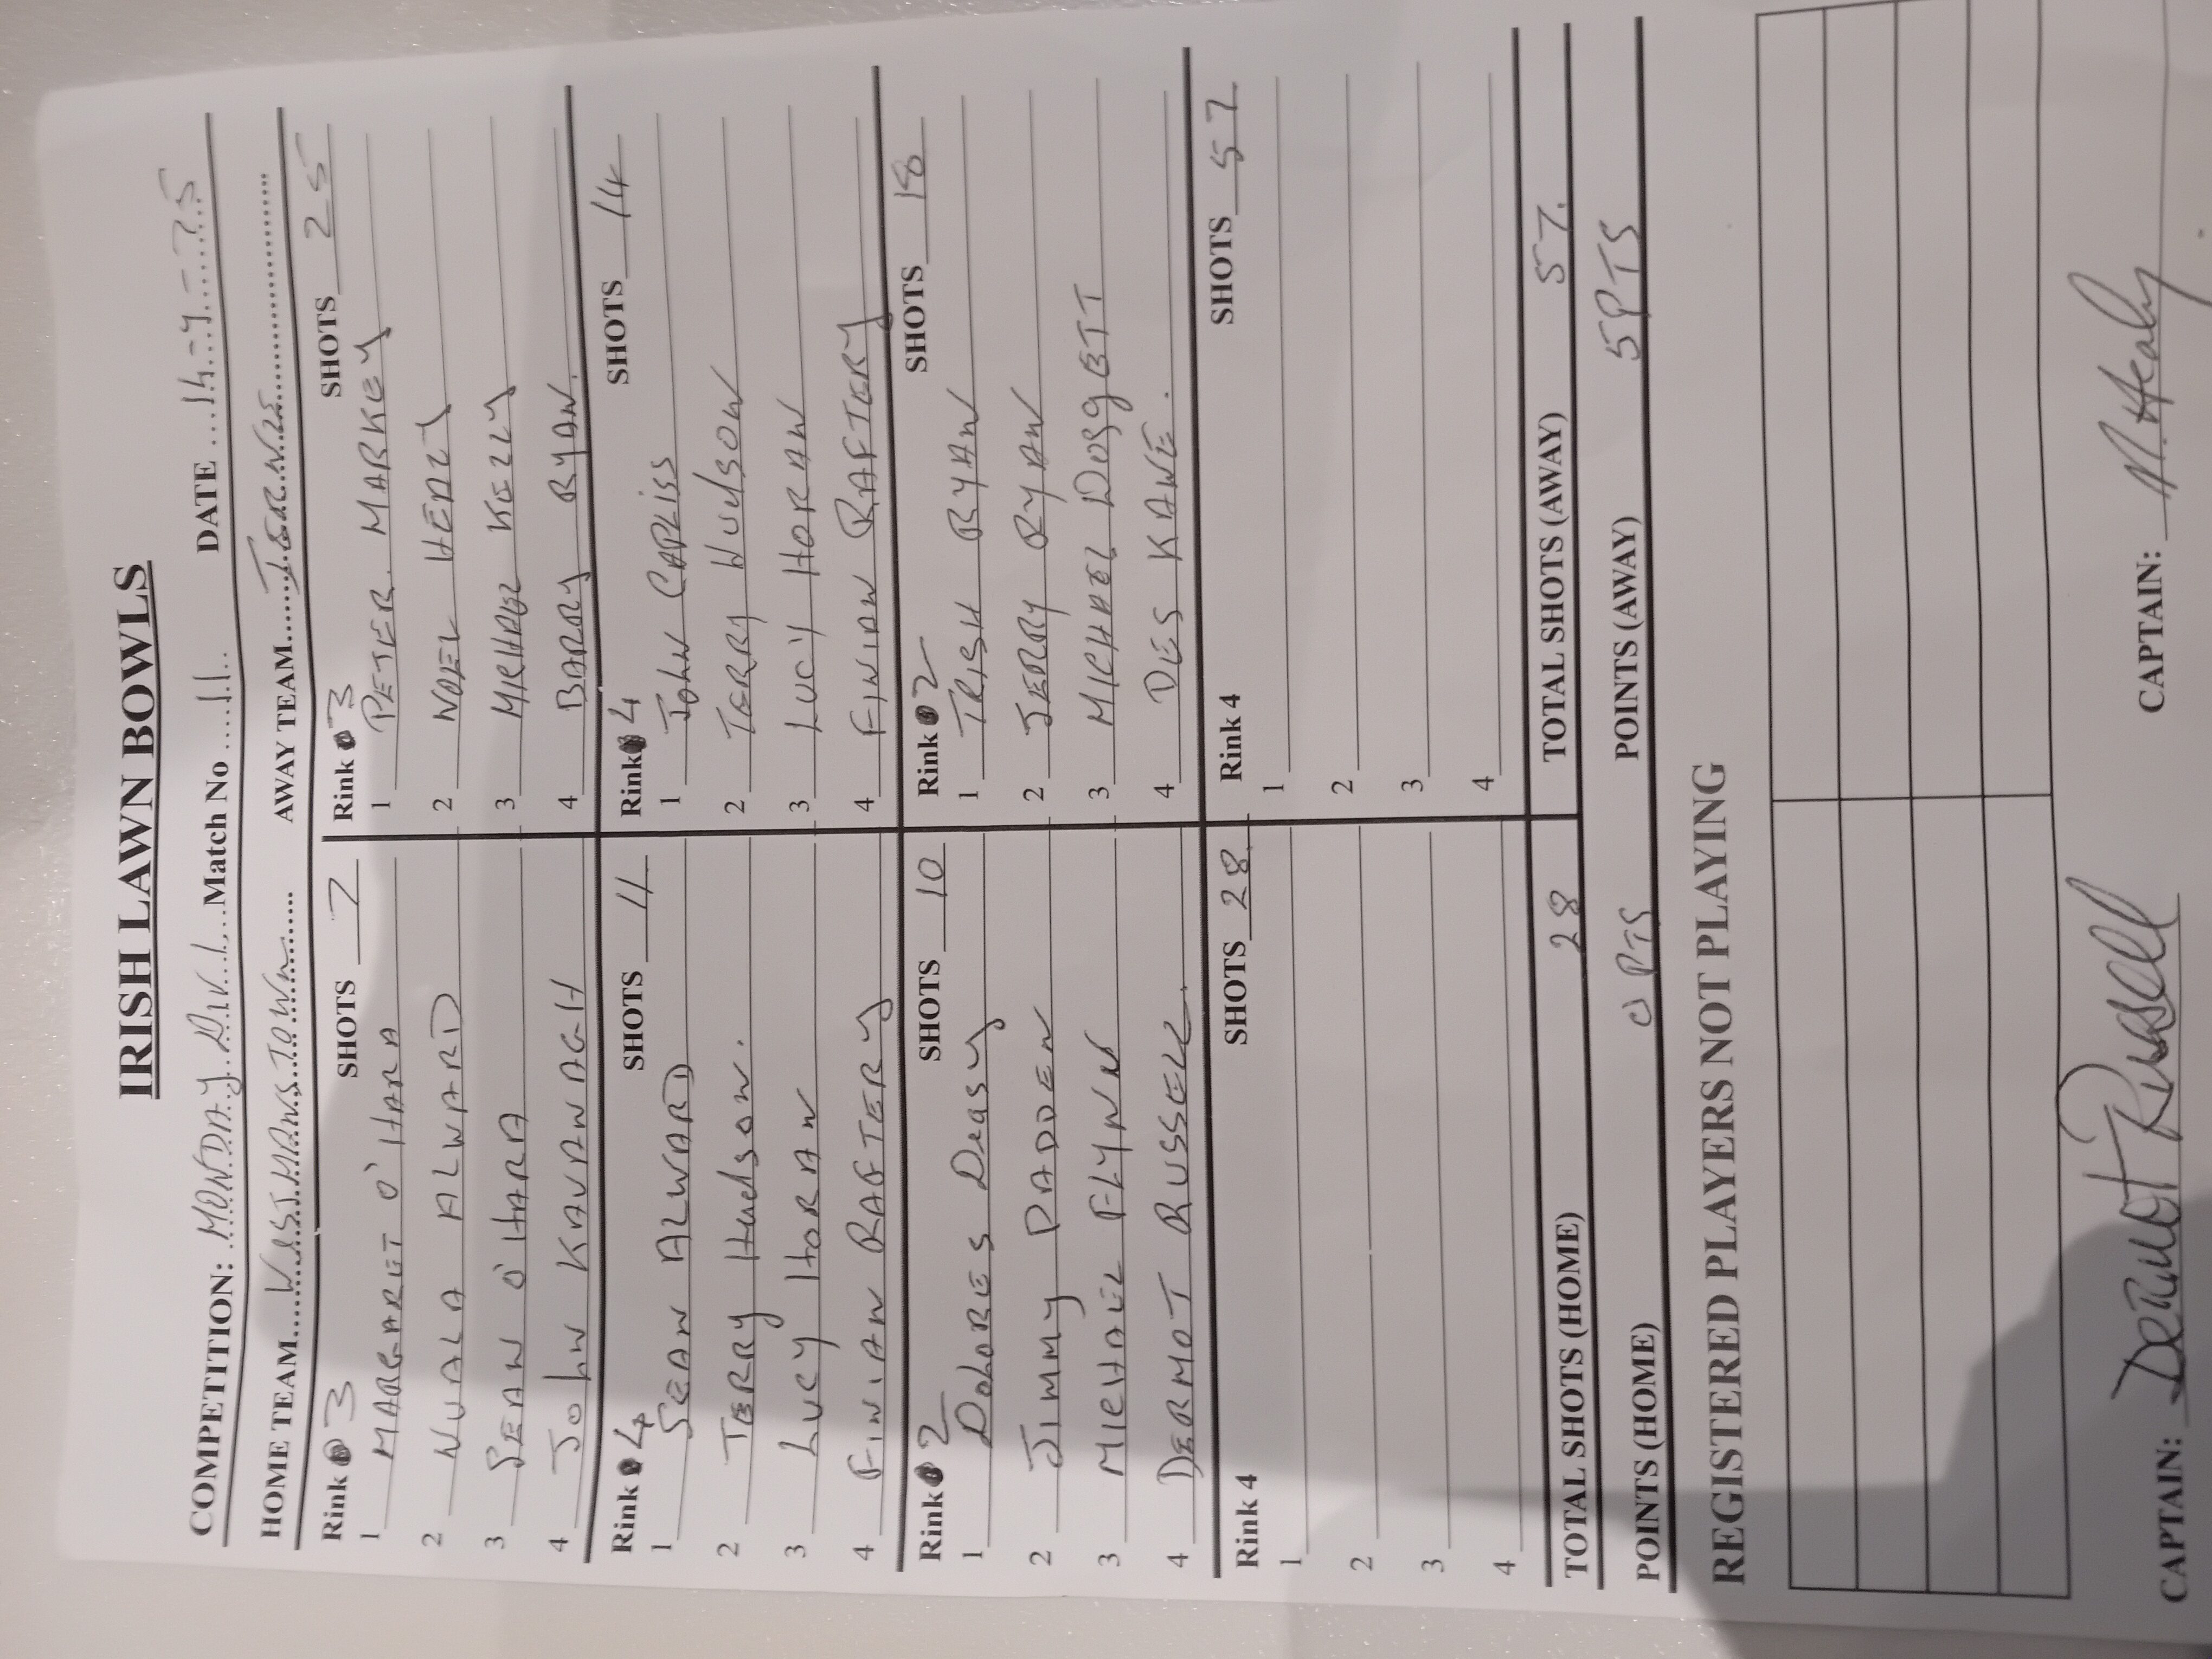 IRISH LAWN BOWLS
COMPETITION: MONDAY DIV 1 Match No 11 DATE 14-7-25
HOME TEAM WESTMANSTOWN AWAY TEAM
Rink 3 SHOTS 7
1 MARGARET O'HARA
2 NUALA ALWARD
3 SEAN O'HARA
4 JOHN KAVANAGH
Rink 3 SHOTS 25
1 PETER MARKEY
2 NOEL HEALY
3 MICHAEL KELLY
4 BARRY RYAN.
Rink 4 SHOTS 11
1 SEAN ALWARD
2 TERRY Hudson.
3 LUCY HORAN
4 FINIAN RAFTERY
Rink 4 SHOTS 14
1 JOHN CAPLISS
2 TERRY HUdSON
3 LUCY HORAN
4 FINIAN RAFTERY
Rink 2 SHOTS 10
1 DOLORES Deasy
2 JIMMY PADDEN
3 MICHAEL FLYNN
4 DERMOT RUSSELL.
Rink 2 SHOTS 18
1 TRISH RYAN
2 JERRY RYAN
3 MICHAEL DOGGETT
4 DES KANE.
Rink 4 SHOTS 28
1
2
3
4
Rink 4 SHOTS 57
1
2
3
4
TOTAL SHOTS (HOME) 28 TOTAL SHOTS (AWAY) 57.
POINTS (HOME) 0 PTS POINTS (AWAY) 5 PTS
REGISTERED PLAYERS NOT PLAYING
CAPTAIN: Dermot Russell CAPTAIN: M. Healy